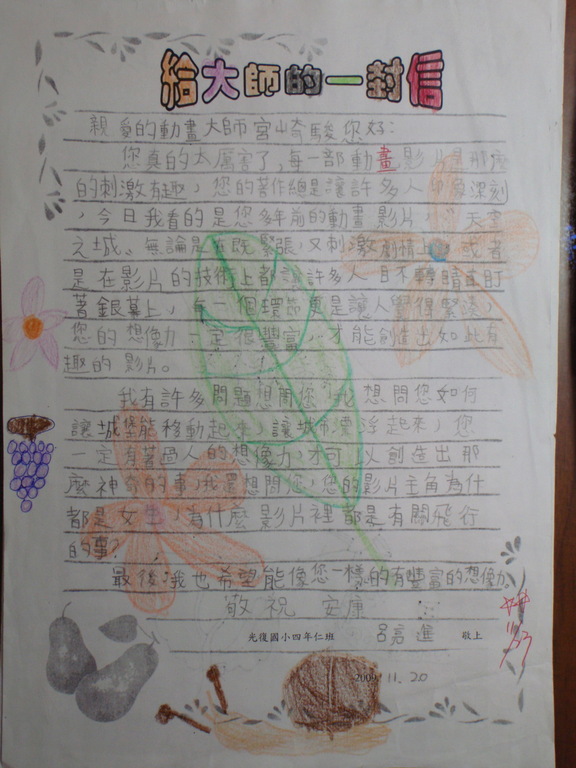 給大師的一封信
親愛的動畫大師宮崎駿您好:
您真的太厲害了,每一部動畫影片是那麼
的刺激有趣,您的著作總是讓許多人印象深刻
,今日我看的是您多年前的動畫影片,天空
之城。無論是在既緊張,又刺激劇情上,或者
是在影片的技術上都讓許多人目不轉睛直盯
著銀幕上,每一個環節更是讓人覺得緊湊,
您的想像力一定很豐富,才能創造出如此有
趣的影片。
我有許多問題想問您,我想問您如何
讓城堡能移動起來,讓城市漂浮起來,您
一定有著過人的想像力,才可以創造出那
麼神奇的事,我還想問您,您的影片主角為什
都是女生,為什麼影片裡都是有關飛行
的事?
最後,我也希望能像您一樣的有豐富的想像力
敬祝 安康
光復國小四年仁班 呂亮進 敬上
11/23
2009.11.20